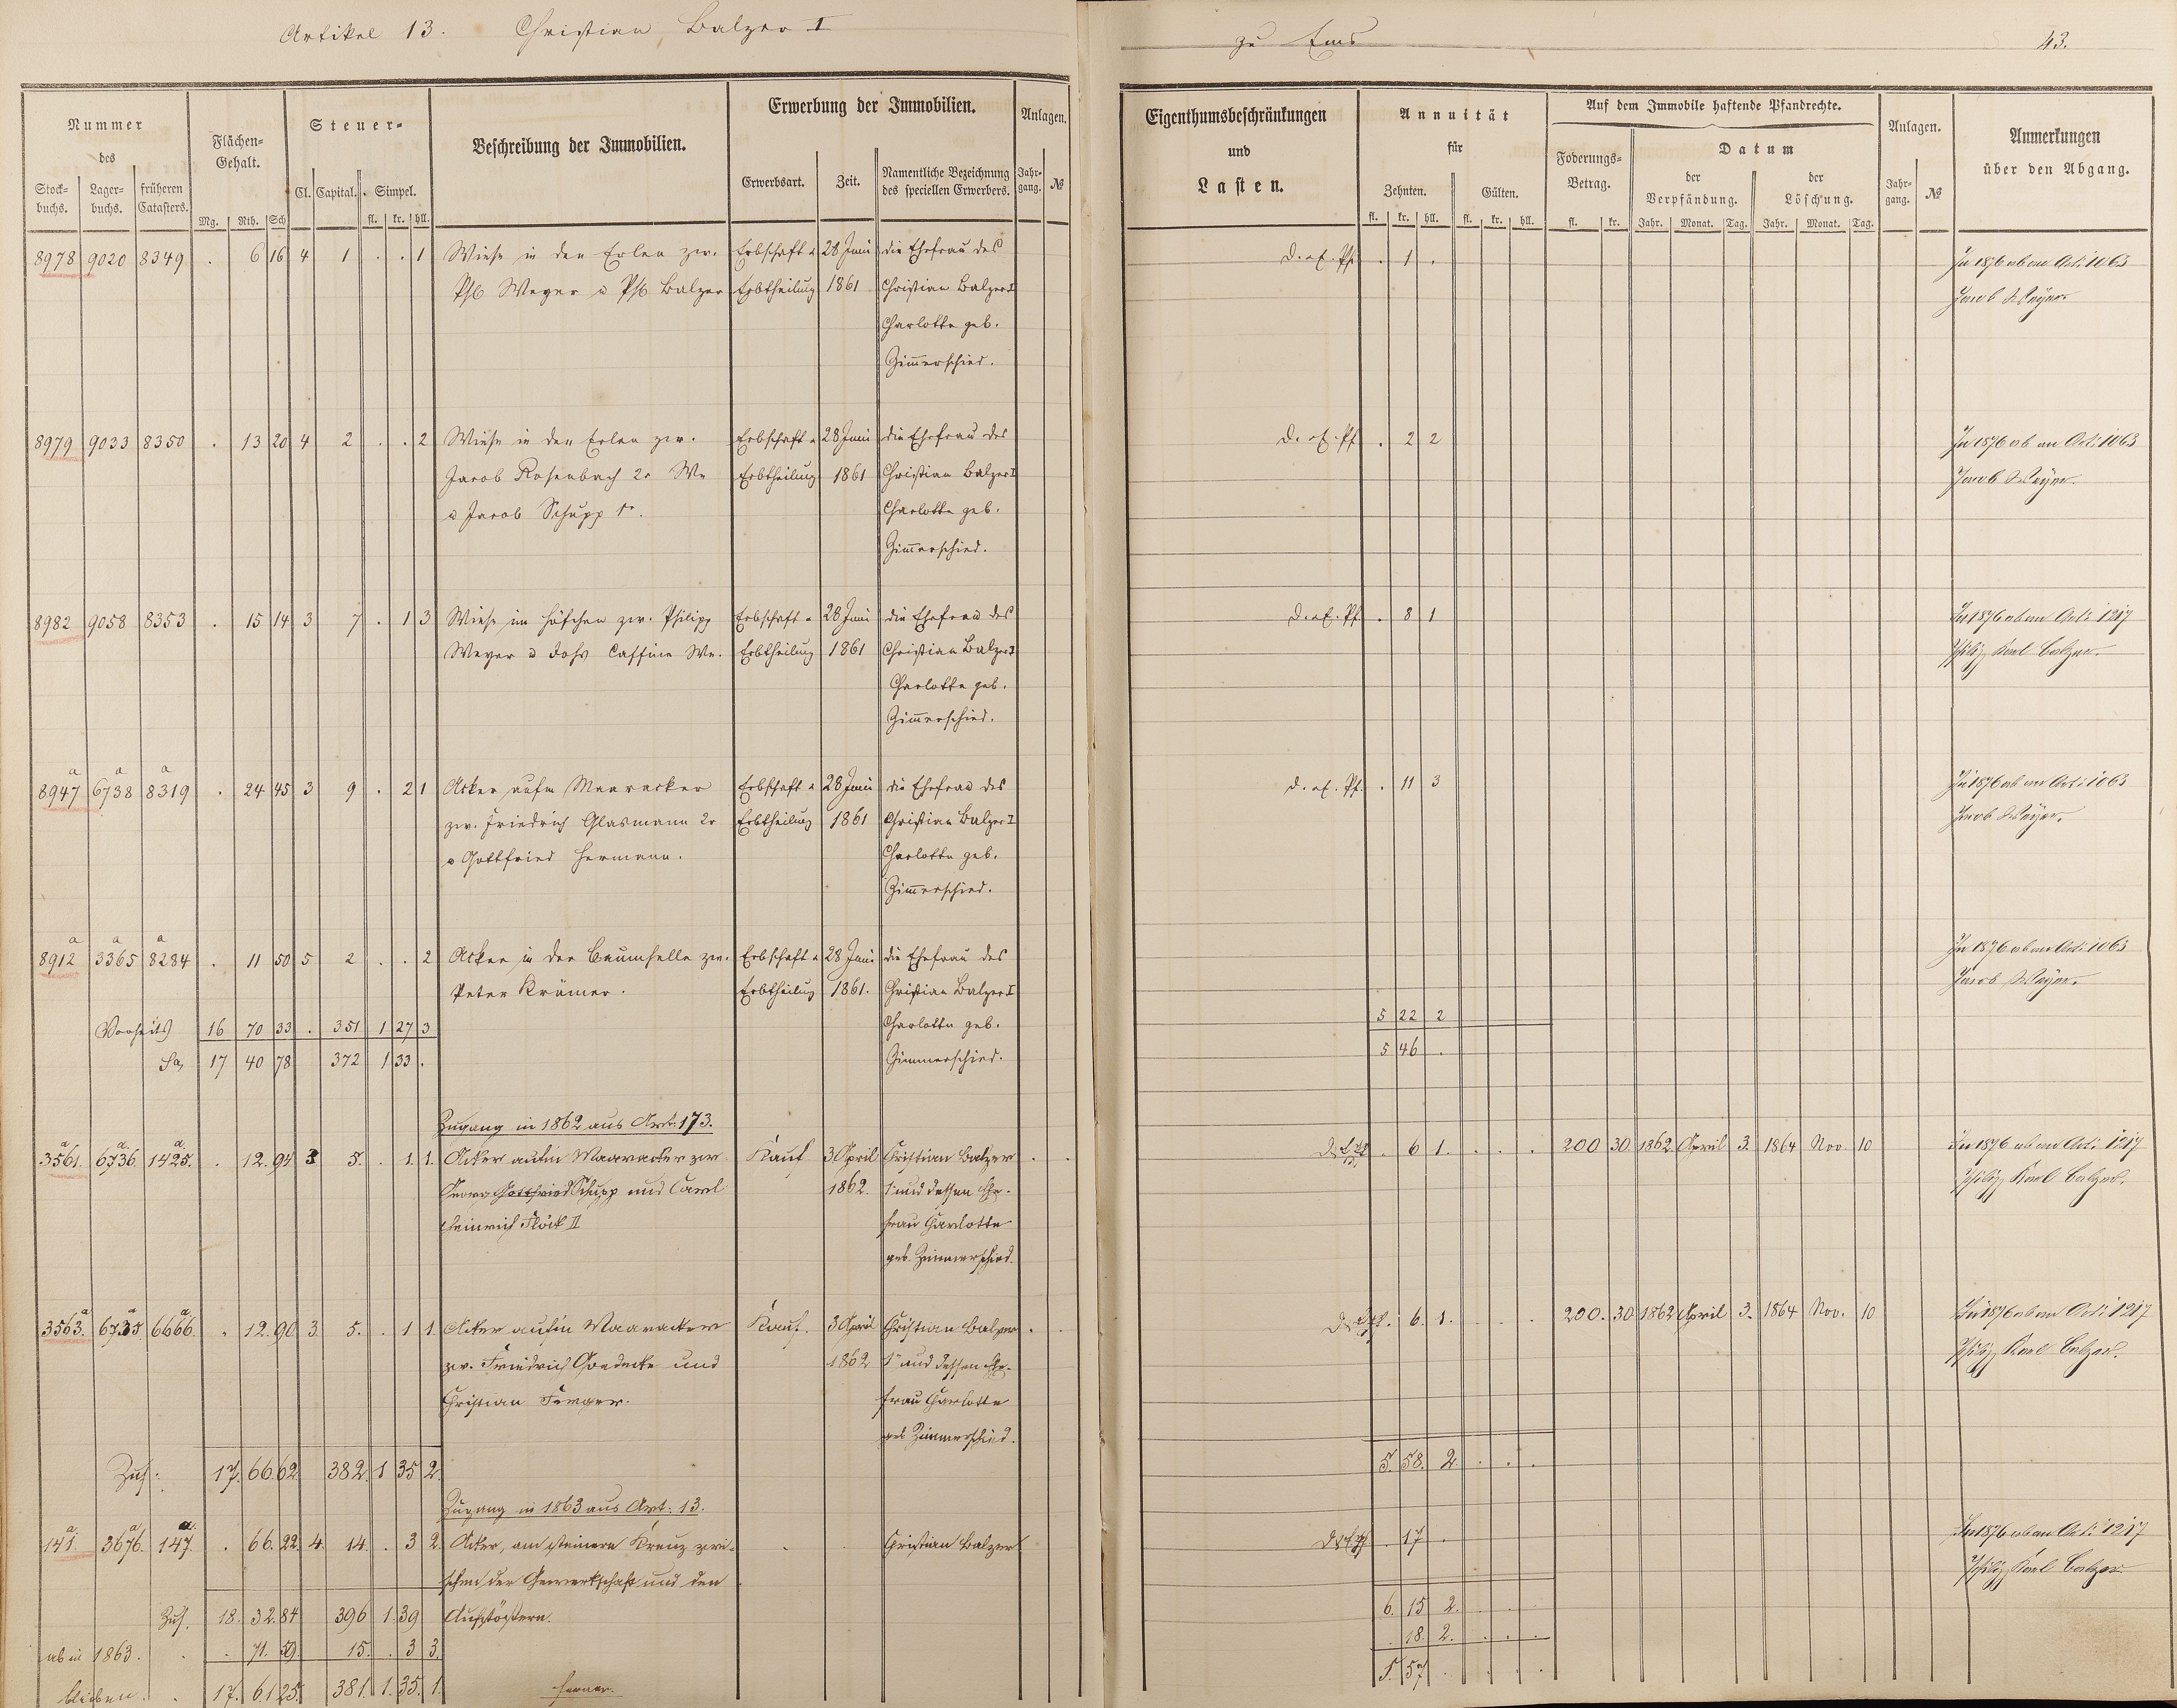 Artikel 13. Christian Balzer I
zu Ems
43.
Nummer des
Stock-buchs. Lager-buchs. früheren Catasters.
Flächen-Gehalt.
Mg. Rth. Sch
Steuer-
Cl. Capital. Simpel.
fl. kr. hll.
Beschreibung der Immobilien.
Erwerbung der Immobilien.
Erwerbsart. Zeit. Namentliche Bezeichnung des speciellen Erwerbers.
Anlagen.
Jahr-gang. №
Eigenthumsbeschränkungen
und
Lasten.
Annuität
für
Zehnten. Gülten.
fl. kr. hll. fl. kr. hll.
Auf dem Immobile haftende Pfandrechte.
Foderungs-Betrag.
fl. kr.
Datum
der Verpfändung. der Löschung.
Jahr. Monat. Tag. Jahr. Monat. Tag.
Anlagen.
Jahr-gang. №
Anmerkungen
über den Abgang.
8978 9020 8349 . 6 16 4 1 . . 1 Wiese in den Erlen zw. Erbschaft u 28 Juni die Ehefrau des . 1 . In 1876 ab an Art. 1063
Phil Weyer u Phil Balzer Erbtheilung 1861 Christian Balzer I Jacob Weyer
Charlotte geb.
Zimerschied.
8979 9033 8350 . 13 20 4 2 . . 2 Wiese in den Erlen zw. Erbschaft u 28 Juni die Ehefrau des . 2 2 In 1876 ab an Art. 1063
Jacob Rosenbach 2r We Erbtheilung 1861 Christian Balzer I Jacob Weyer.
u Jacob Schupp 1r. Charlotte geb.
Zimerschied.
8982 9058 8353 . 15 14 3 7 . 1 3 Wiese im Höfchen zw. Philipp Erbschaft u 28 Juni die Ehefrau des . 8 1 In 1876 ab an Art. 1217
Weyer u Johs Caffine We. Erbtheilung 1861 Christian Balzer I Philipp Karl Balzer.
Charlotte geb.
Zimerschied.
8947 a 6738 a 8319 a . 24 45 3 9 . 2 1 Acker aufm Maaracker Erbschaft u 28 Juni die Ehefrau des . 11 3 In 1876 ab an Art. 1063
zw. Friedrich Glasmann 2r Erbtheilung 1861 Christian Balzer I Jacob Weyer.
u Gottfried Hermann. Charlotte geb.
Zimerschied.
8912 a 3365 a 8284 a . 11 50 5 2 . . 2 Acker in der Baumhelle zw. Erbschaft u 28 Juni die Ehefrau des In 1876 ab an Art. 1063
Peter Krämer. Erbtheilung 1861. Christian Balzer I Jacob Weyer.
Vorseits 16 70 33 . 351 1 27 3 Charlotte geb. 5 22 2
Sa, 17 40 78 372 1 33 . Zimmerschied. 5 46 .
Zugang in 1862 aus Art. 173.
3561. a 6736. a 1425. a . 12. 94 3 5. . 1. 1. Acker aufm Maaracker zw Kauf 3 April Christian Balzer . 6 1. . . . 200 30 1862 April 3. 1864 Nov. 10 In 1876 ab an Art. 1217
Georg Gottfried Schupp und Carl 1862. 1r und dessen Ehe- Philipp Karl Balzer.
Heinrich Flöck II frau Charlotte
geb. Zimmerschied.
3563. a 6735. a 6666. a . 12. 90 3. 5. . 1 1. Acker aufm Maaracker Kauf. 3 April Christian Balzer . 6. 1. . . . 200. 30 1862 April 3. 1864 Nov. 10 In 1876 ab an Art. 1217
zw. Friedrich Goedecke und 1862 1r und dessen Ehe- Philipp Karl Balzer.
Christian Finger. frau Charlotte
geb Zimmerschied.
Zus: 17. 66. 62. 382. 1 35 2. 5. 58. 2. . . .
Zugang in 1863 aus Art. 13.
141. a 3676. a 147. a . 66. 22. 4. 14. . 3 2. Acker, am steinern Kreuz zwi- Christian Balzer . 17 . In 1876 ab an Art. 1217
schen der Gewerkschaft und den Philipp Karl Balzer.
Zus. 18. 32. 84 396 1. 39 Aufstößern. 6. 15 2.
ab in 1863. . 71. 59. 15. . 3 3. . 18. 2. . . .
bleiben. 17. 61. 25. 381. 1. 35. 1. ferner. 5. 57 . . . .